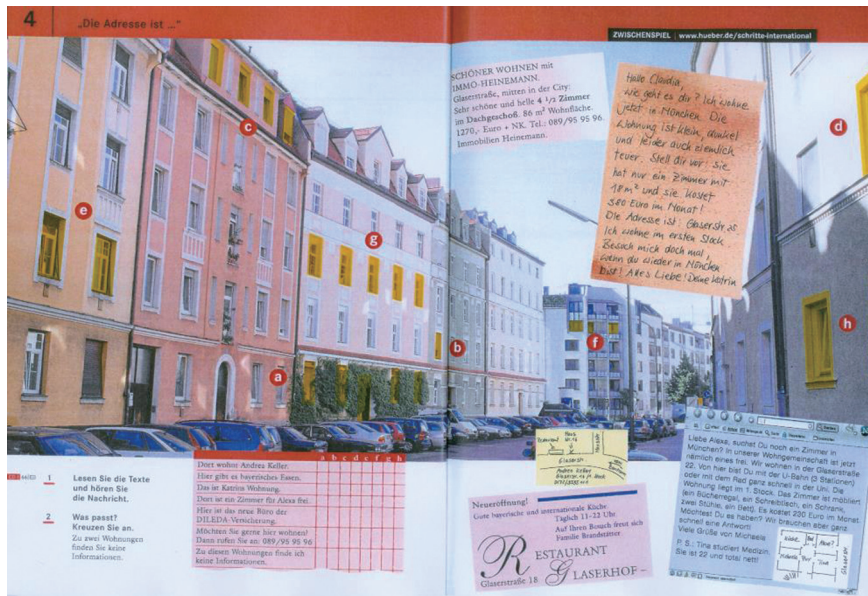 4
„Die Adresse ist ..."
ZWISCHENSPIEL | www.hueber.de/schritte-international
SCHÖNER WOHNEN mit
IMMO-HEINEMANN.
Glaserstraße, mitten in der City:
Sehr schöne und helle 4 1/2 Zimmer
im Dachgeschoß. 86 m² Wohnfläche.
1270,- Euro + NK. Tel.: 089/95 95 96.
Immobilien Heinemann.
Hallo Claudia,
wie geht es dir? Ich wohne
jetzt in München. Die
Wohnung ist klein, dunkel
und leider auch ziemlich
teuer. Stell dir vor: Sie
hat nur ein Zimmer mit
18m² und sie kostet
580 Euro im Monat!
Die Adresse ist: Glaserstr. 25
Ich wohne im ersten Stock.
Besuch mich doch mal,
wenn du wieder in München
bist! Alles Liebe! Deine Katrin
e
c
g
a
b
f
d
h
1
Lesen Sie die Texte
und hören Sie
die Nachricht.
2
Was passt?
Kreuzen Sie an.
Zu zwei Wohnungen
finden Sie keine
Informationen.
a b c d e f g h
Dort wohnt Andrea Keller.
Hier gibt es bayerisches Essen.
Das ist Katrins Wohnung.
Dort ist ein Zimmer für Alexa frei.
Hier ist das neue Büro der
DILEDA-Versicherung.
Möchten Sie gerne hier wohnen?
Dann rufen Sie an: 089/95 95 96
Zu diesen Wohnungen finde ich
keine Informationen.
Haus
Glaserstr.
Andrea Keller
Neueröffnung!
Gute bayerische und internationale Küche
Täglich 11–22 Uhr
Auf Ihren Besuch freut sich
Familie Brandstätter.
RESTAURANT
GLASERHOF
Glaserstraße 18
Liebe Alexa, suchst Du noch ein Zimmer in
München? In unserer Wohngemeinschaft ist jetzt
nämlich eines frei. Wir wohnen in der Glaserstraße
22. Von hier bist Du mit der U-Bahn (3 Stationen)
oder mit dem Rad ganz schnell in der Uni. Die
Wohnung liegt im 1. Stock. Das Zimmer ist möbliert
(ein Bücherregal, ein Schreibtisch, ein Schrank,
zwei Stühle, ein Bett). Es kostet 230 Euro im Monat.
Möchtest Du es haben? Wir brauchen aber ganz
schnell eine Antwort!
Viele Grüße von Michaela
P. S.: Tina studiert Medizin.
Sie ist 22 und total nett!